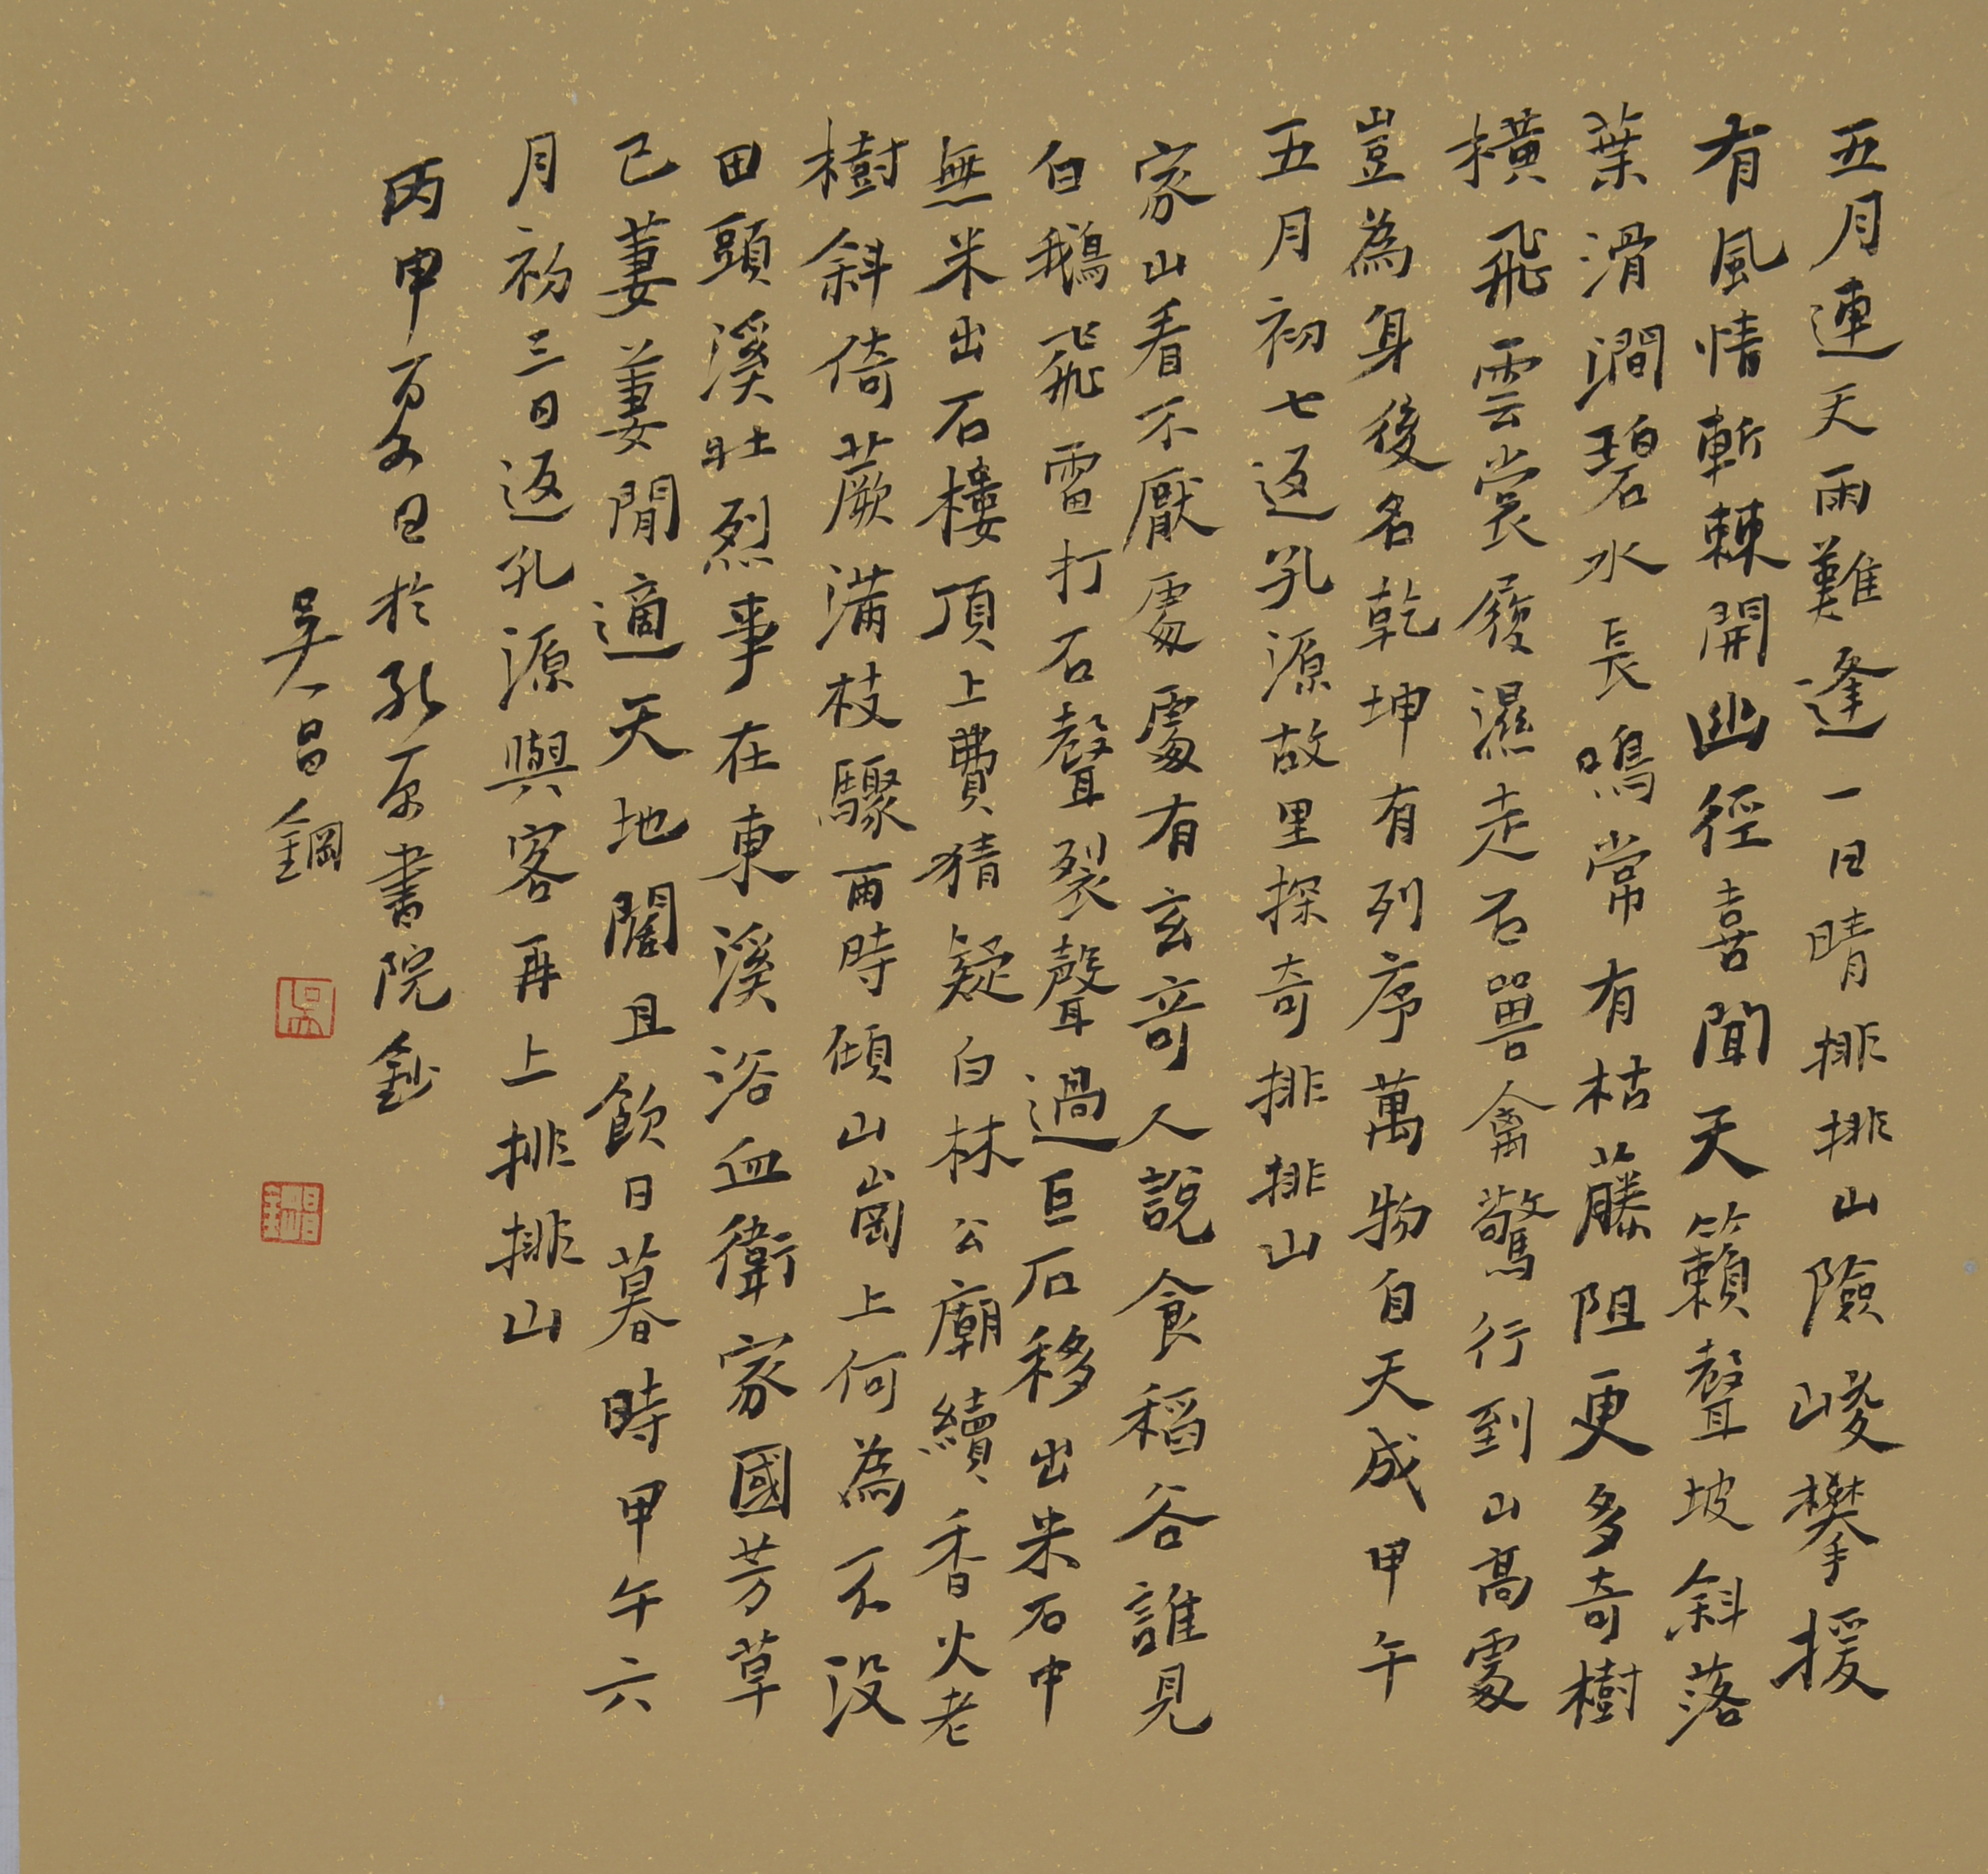 五月連天雨難逢一日晴排排山險峻攀援
有風情斬棘開幽徑喜聞天籟聲坡斜落
葉滑澗碧水長鳴常有枯藤阻更多奇樹
橫飛雲裳履濕走石獸禽驚行到山高處
豈為身後名乾坤有列序萬物自天成甲午
五月初七返孔源故里探奇排排山
家山看不厭處處有玄奇人說食稻谷誰見
白鵝飛雷打石聲裂聲過巨石移出米石中
無米出石樓頂上費猜疑白林公廟續香火老
樹斜倚蕨滿枝驟雨時傾山崗上何為不沒
田頭溪壯烈事在東溪浴血衛家國芳草
已萋萋閒適天地闊且飲日暮時甲午六
月初三日返孔源與客再上排排山
丙申夏日於孔原書院鈔
吳昌鋼
吳